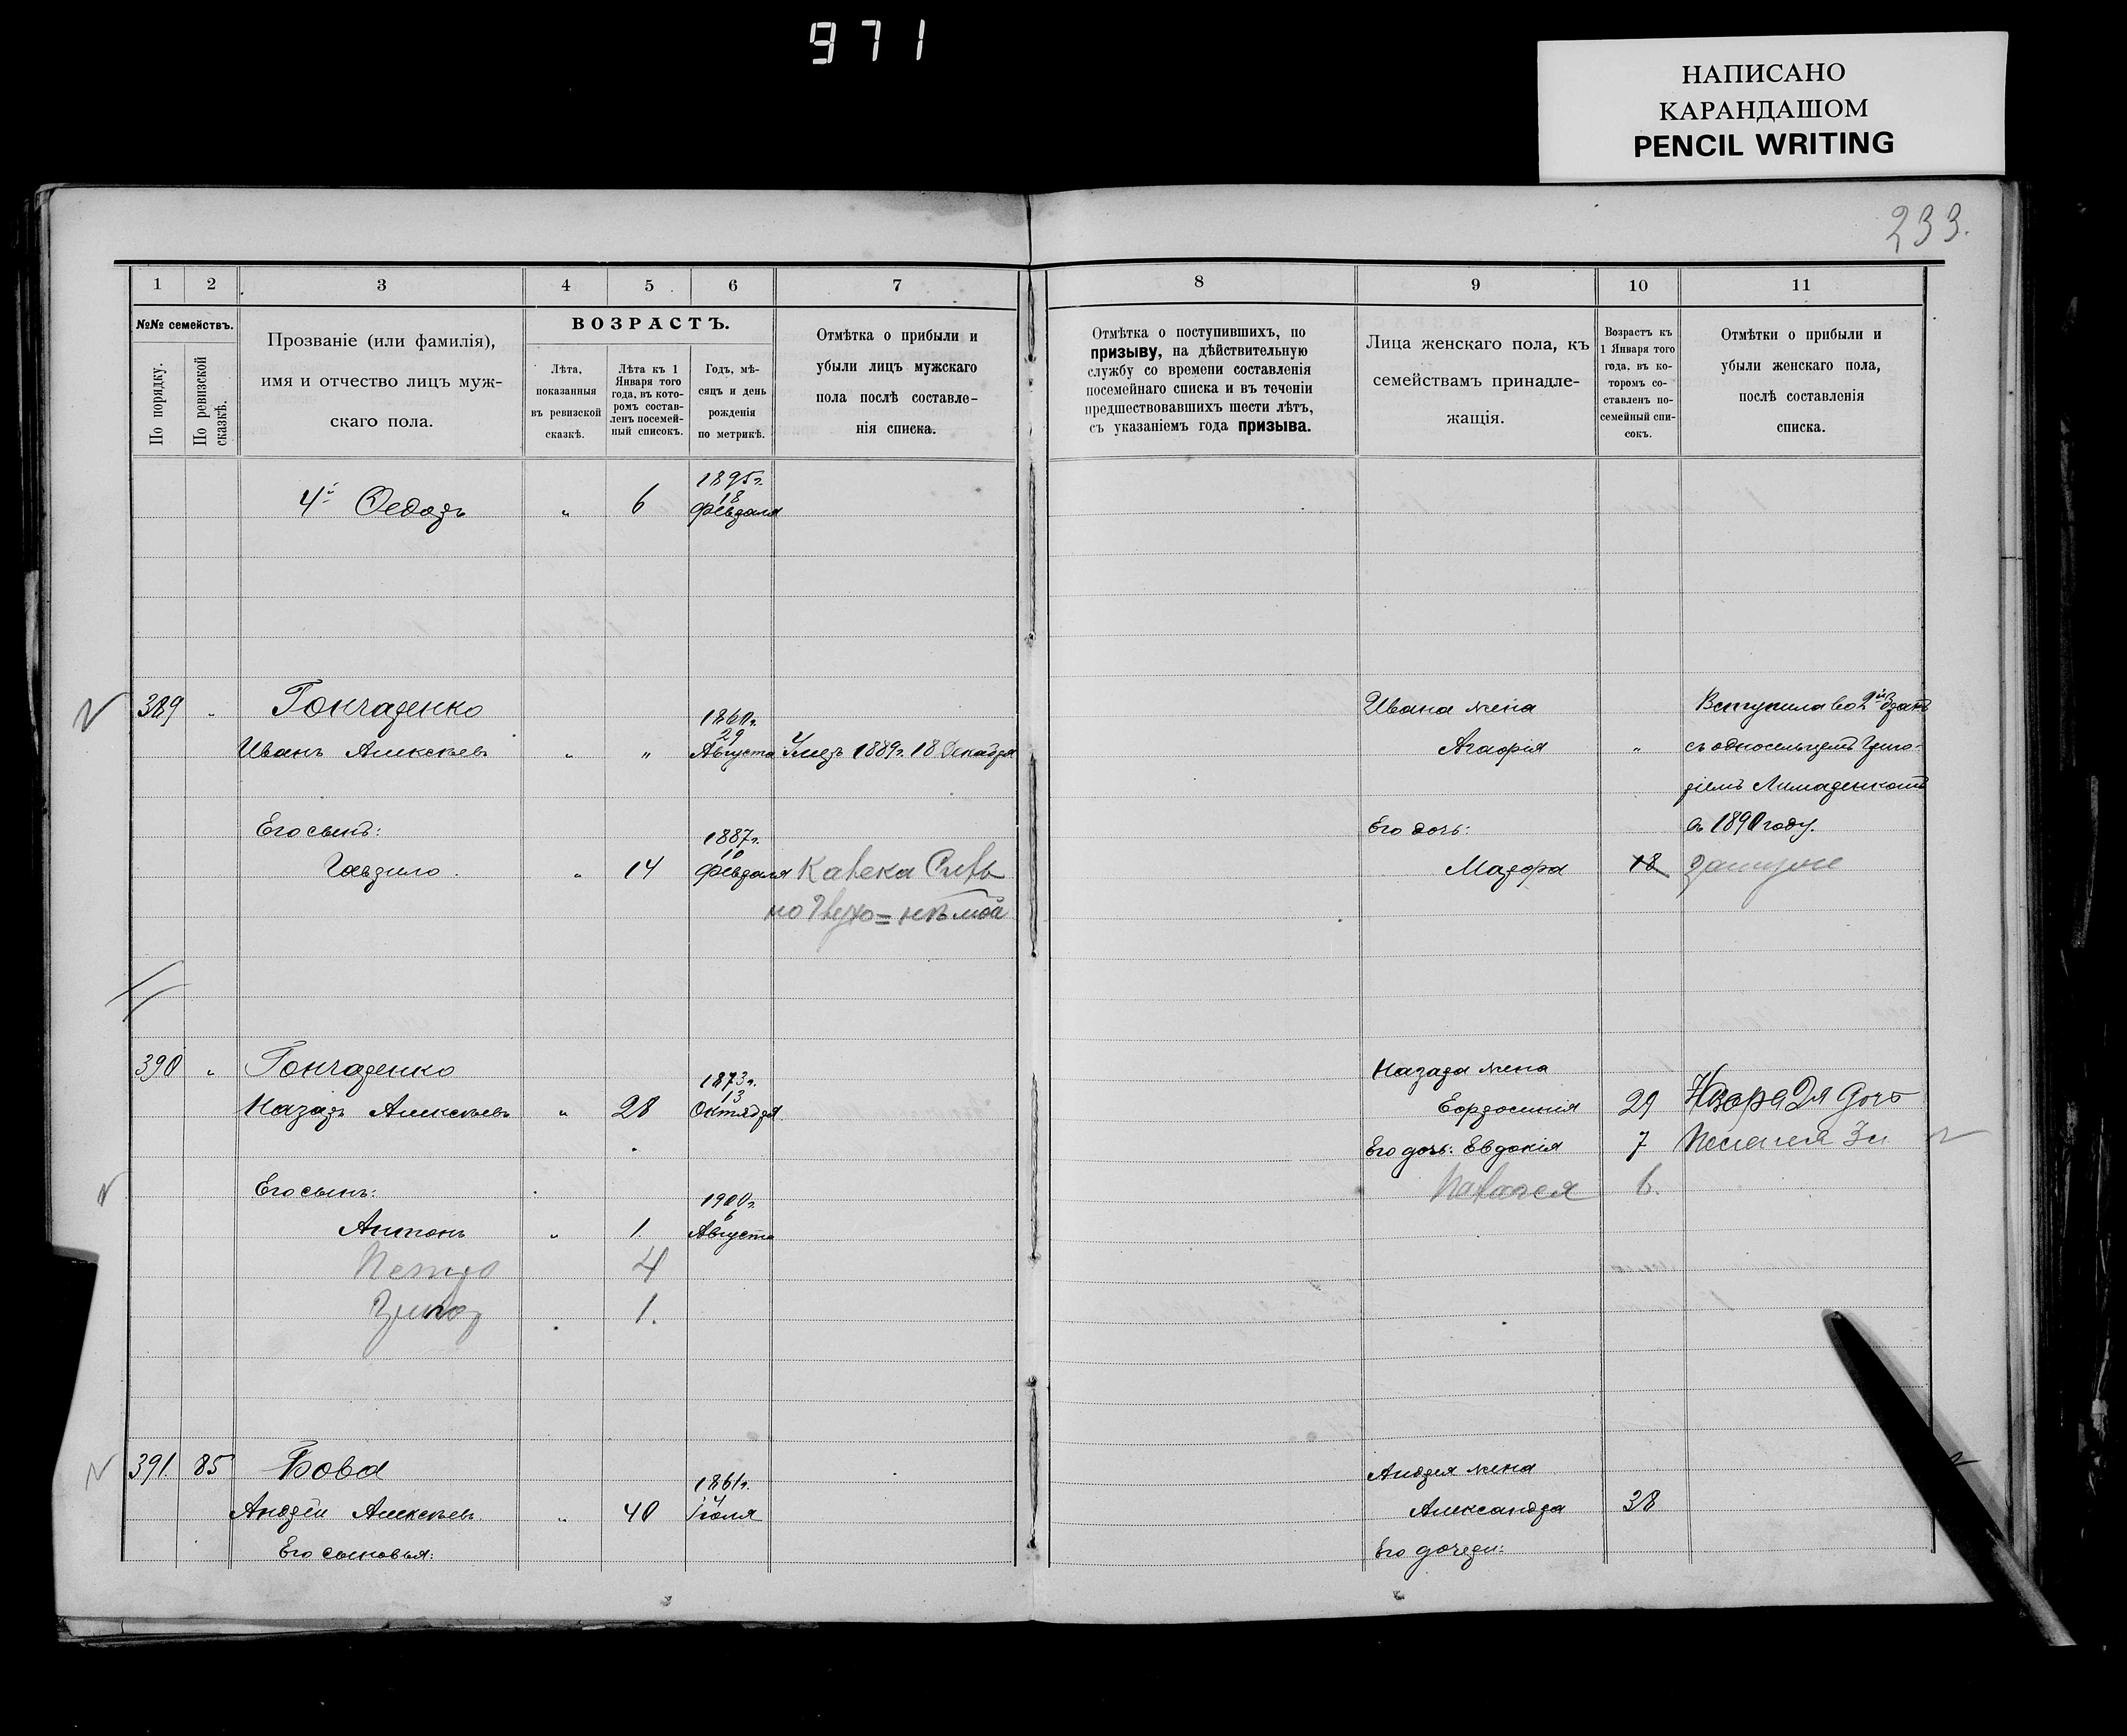 971
НАПИСАНО
КАРАНДАШОМ
PENCIL WRITING
233.
1 2 3 4 5 6 7 8 9 10 11
№№ семействъ.
По порядку.
По ревизской сказкѣ.
Прозваніе (или фамилія),
имя и отчество лицъ муж-
скаго пола.
ВОЗРАСТЪ.
Лѣта,
показанныя
въ ревизской
сказкѣ.
Лѣта къ 1
Января того
года, въ кото-
ромъ состав-
ленъ посемей-
ный списокъ.
Годъ, мѣ-
сяцъ и день
рожденія
по метрикѣ.
Отмѣтка о прибыли и
убыли лицъ мужскаго
пола послѣ составле-
нія списка.
Отмѣтка о поступившихъ, по
призыву, на дѣйствительную
службу со времени составленія
посемейнаго списка и въ теченіи
предшествовавшихъ шести лѣтъ,
съ указаніемъ года призыва.
Лица женскаго пола, къ
семействамъ принадле-
жащія.
Возрастъ къ
1 Января того
года, въ ко-
торомъ со-
ставленъ по-
семейный спи-
сокъ.
Отмѣтки о прибыли и
убыли женскаго пола,
послѣ составленія
списка.
1895г.
18
4й Ѳедоръ " 6 Февраля
389 " Гончаренко
1860г.
29
Иванъ Алексѣевъ " " Августа Умеръ 1889г. 18 Декабря
Ивана жена
Агафія "
Вступила во 2й бракъ
съ односельцемъ Григо-
ріемъ
въ 1890 году.
Его сынъ:
1887г.
10
Гаврило. " 14 Февраля Калека
но Глухо=нѣмой
Его дочь:
Мавра 18 замужем
390 " Гончаренко
1873г.
13
Назаръ Алексѣевъ " 28 Октября
Назара жена
Евфросинія 29
Его дочь: Евдокія 7
Палагея 6.
Назара 2я дочь
Его сынъ:
1900г.
6
Антонъ " 1. Августа
Петро 4
Григор 1.
391. 85 Бова
1861г.
4
Андрей Алексѣевъ " 40 Іюля
Его сыновья:
Андрея жена
Александра 38
Его дочери: